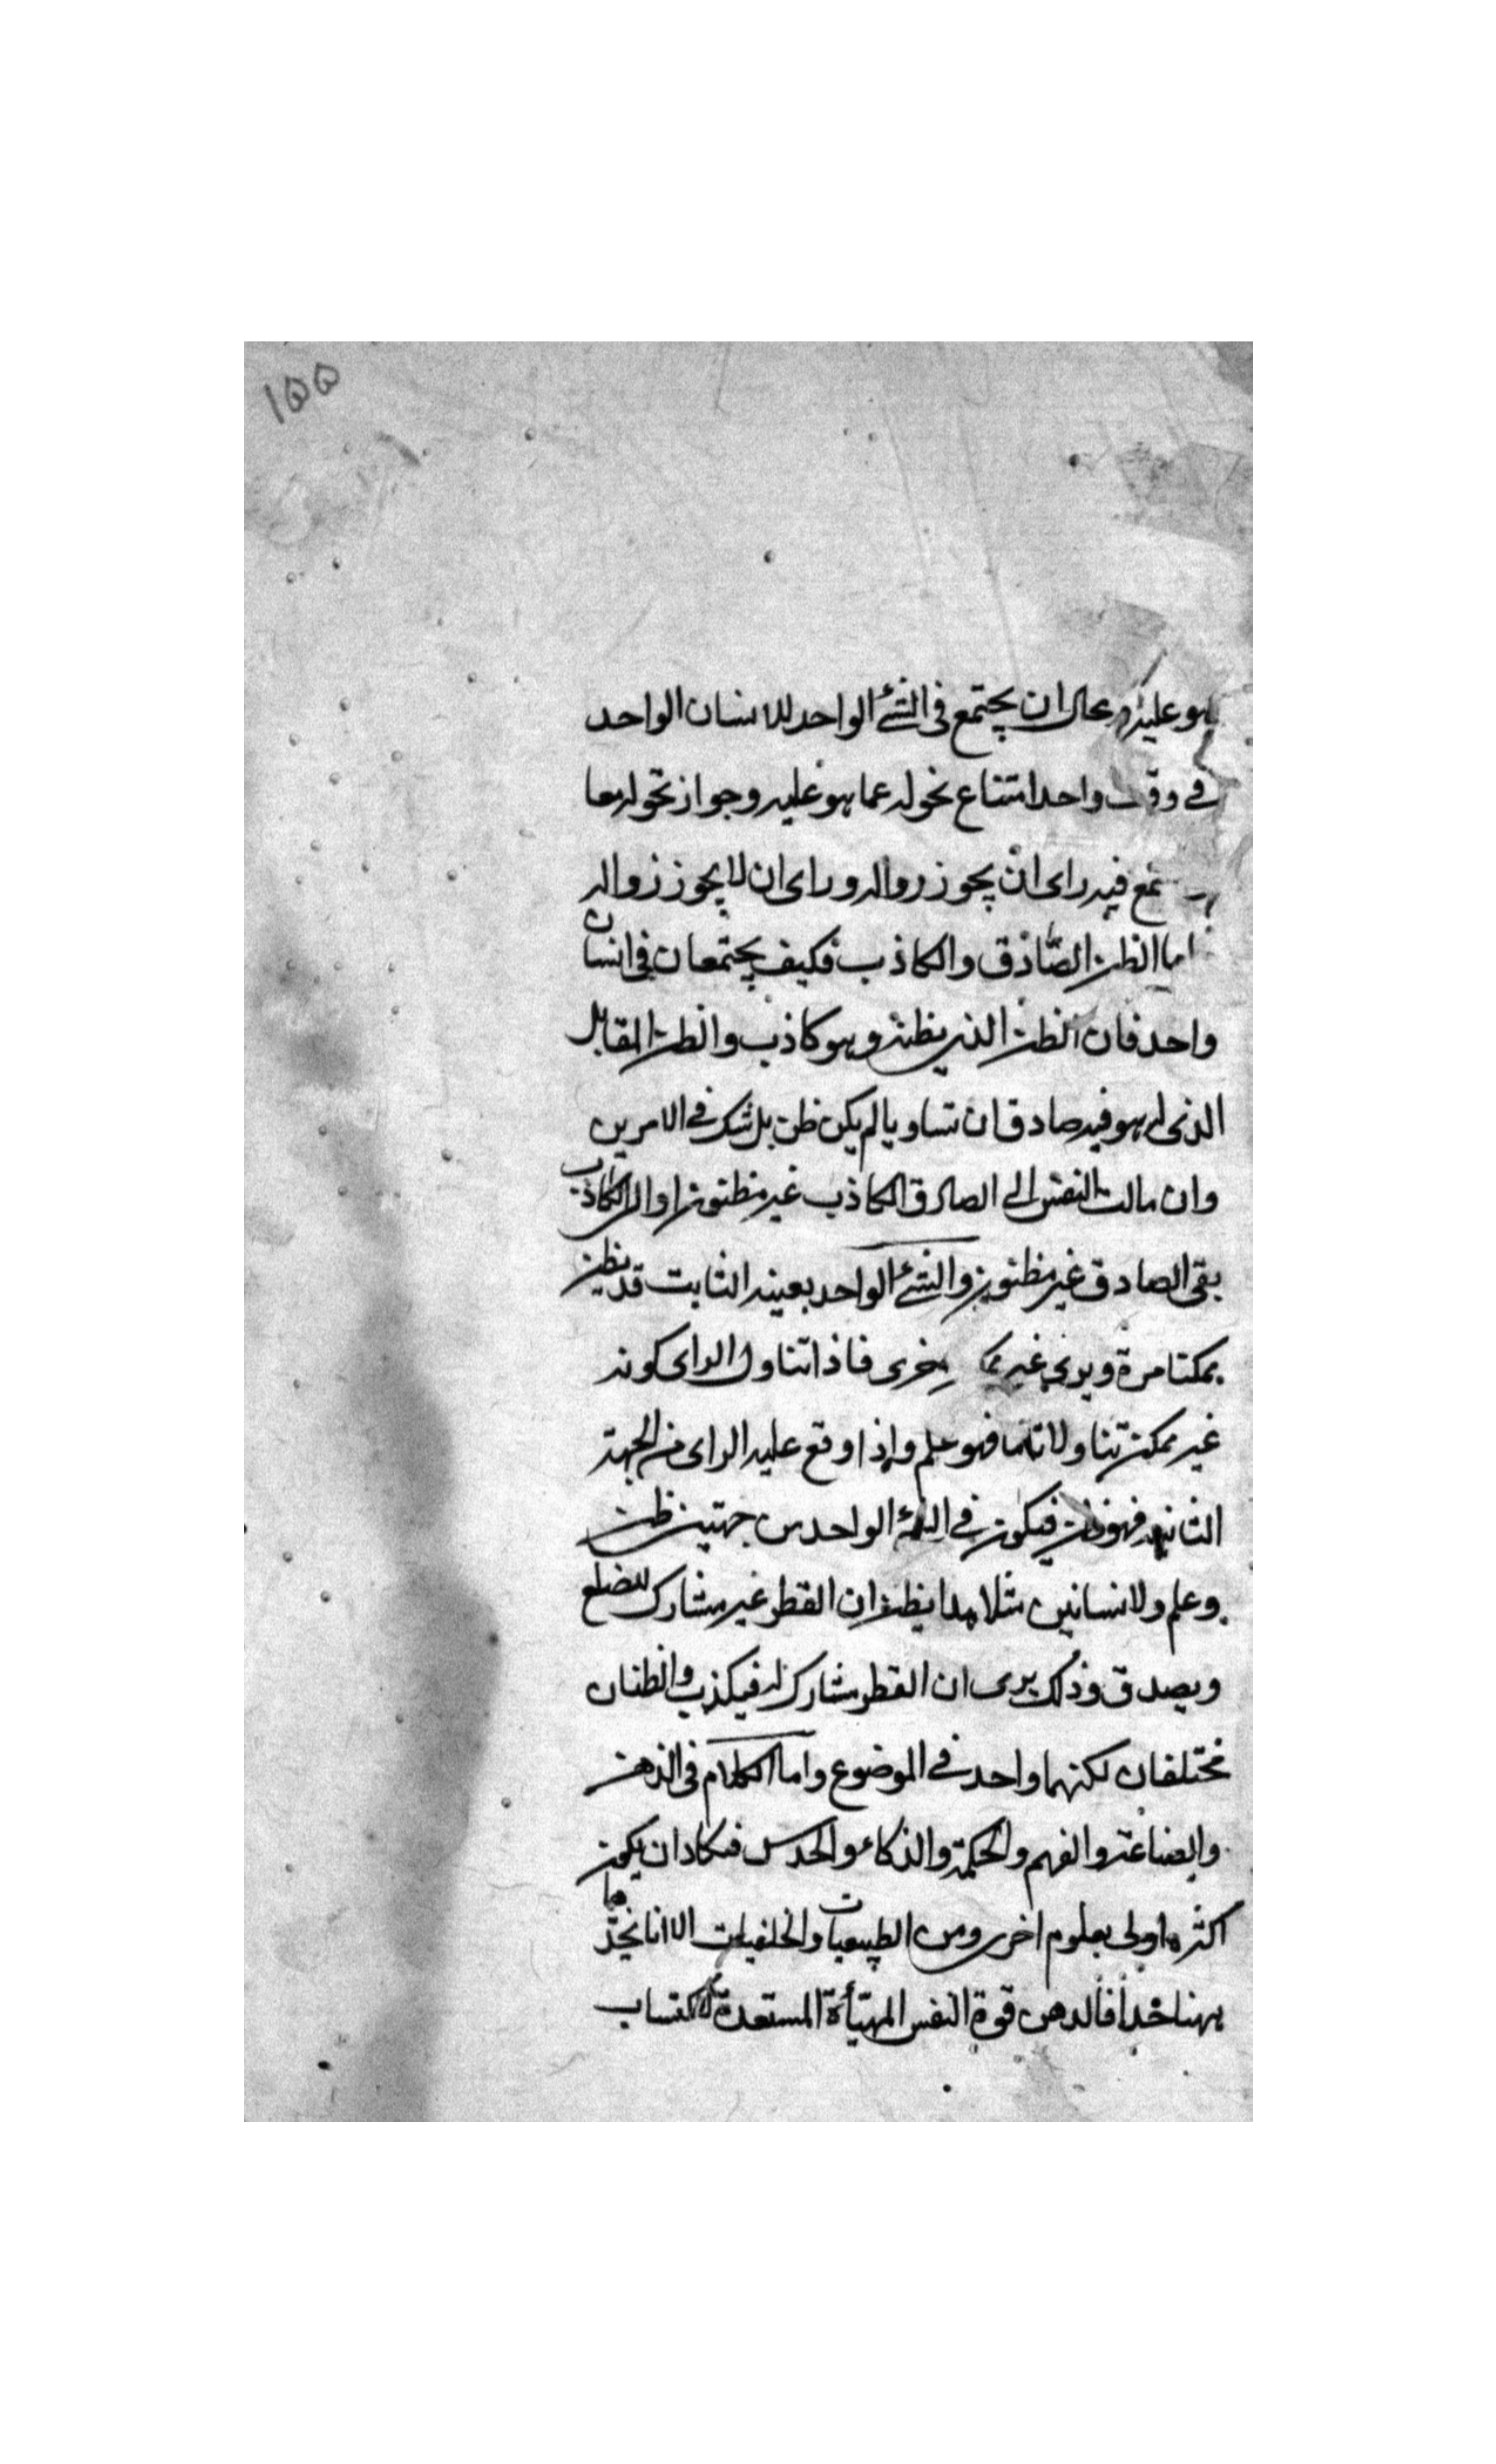 ١٥٥
هو عليه ومحال ان يجتمع فى الشئ الواحد للانسان الواحد
فى وقت واحد امتناع تحوله عما هو عليه وجواز تحوله معا
فيه راى ان يجوز زواله وراى ان لا يجوز زواله
اما الظن الصادق والكاذب فكيف يجتمعان فى انسان
واحد فان الظن الذى يظنه وهو كاذب والظن المقابل
الذى له هو فيه صادق ان تساويا لم يكن ظن بل شك فى الامرين
وان مالت النفس الى الصادق الكاذب غير مظنون او الى الكاذب
بقى الصادق غير مظنون والشئ الواحد بعينه الثابت قد يظن
ممكنا مرة ويرى غير فاذا تناول الراى كونه
غير ممكن تناولا تاما فهو علم واذا وقع عليه الراى من الجهة
الثانية فهو ظن فيكون فى الشئ الواحد من جهتين ظن
وعلم ولانسانين مثلا هذا يظن ان القطر غير مشارك للضلع
ويصدق وذلك يرى ان القطر مشارك له فيكذب والظنان
مختلفان لكنهما واحد فى الموضوع واما الكلام فى الذهن
والصناعة والفهم والحكمة والذكاء والحدس فيكاد ان يكون
اكثره اولى بعلوم اخرى ومن الطبيعيات والخلقيات الا انا نحدها
ههنا حدا فالذهن قوة النفس المهيأة المستعدة لاكتساب